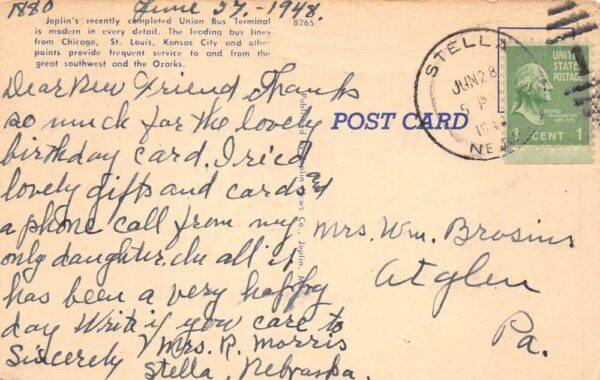 1880 June 27 - 1948.
Joplin's recently completed Union Bus Terminal
is modern in every detail. The leading bus lines
from Chicago, St. Louis, Kansas City and other
points provide frequent service to and from the
great southwest and the Ozarks.
8265
Dear New Friend Thanks
so much for the lovely
birthday card. I rc'd
lovely gifts and cards and
a phone call from my
only daughter. In all it
has been a very happy
day Write if you care to
Sincerely Mrs. R. Morris
Stella, Nebraska.
Published Joplin News Co., Joplin,
POST CARD
STELLA
JUN 28
5 P
19
NE
UNITED
STATES
POSTAGE
GEORGE
WASHINGTON
1 CENT 1
Mrs. Wm. Brosius
Atglen
Pa.